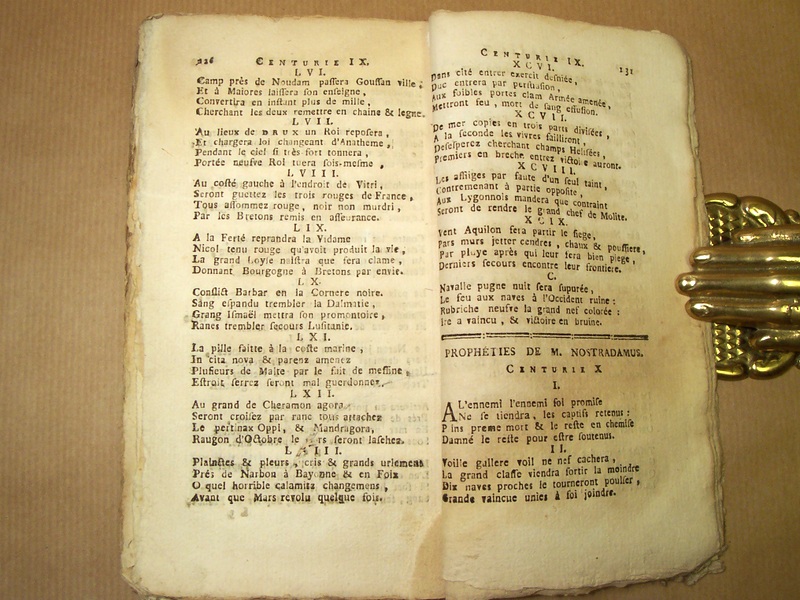 226 CENTURIE IX.
LVI.
Camp près de Noudam paſſera Gouſſan ville ;
Et à Maiores laiſſera ſon enſeigne,
Convertira en inſtant plus de mille,
Cherchant les deux remettre en chaine & legne.
LVII.
Au lieux de DRUX un Roi repoſera,
Et chargera loi changeant d'Anatheme,
Pendant le ciel ſi très fort tonnera,
Portée neufve Roi tuera ſois-meſme,
LVIII.
Au coſté gauche à l'endroit de Vitri,
Seront guettez les trois rouges de France,
Tous aſſommez rouge, noir non murdri,
Par les Bretons remis en aſſeurance.
LIX.
A la Ferté reprandra la Vidame
Nicol tenu rouge qu'avoit produit la vie,
La grand Loyle naiſtra que fera clame,
Donnant Bourgogne à Bretons par envie.
LX.
Conflict Barbar en la Cornere noire.
Sang eſpandu trembler la Dalmatie,
Grang Iſmaël mettra ſon promontoire,
Ranes trembler ſecours Luſitanie.
LXI.
La pille faitte à la coſte marine,
In cita nova & parenz amenez
Pluſieurs de Malte par le fait de meſſine,
Eſtroit ſerrez ſeront mal guerdonnez.
LXII.
Au grand de Cheramon agora
Seront croiſez par ranc tous attachez
Le pertinax Oppi, & Mandragora,
Raugon d'Octobre le ſeront laſchez.
LXIII.
Plainctes & pleurs, cris & grands urlemens
Prés de Narbon à Bayonne & en Foix
O quel horrible calamitz changemens,
Avant que Mars revolu quelque fois.
CENTURIE IX. 131
XCVI.
Dans cité entrer exercit deſniée,
Duc entrera par perſuaſion,
Aux foibles portes clam Armée amenée,
Mettront feu, mort de ſang effuſion.
XCVII.
De mer copies en trois parts diviſées,
A la ſeconde les vivres failliront,
Deſeſperez cherchant champs Heliſées,
Premiers en breche entrez victoire auront.
XCVIII.
Les affliges par faute d'un ſeul taint,
Contremenant à partie oppoſite,
Aux Lygonnois mandera que contraint
Seront de rendre le grand chef de Molite.
XCIX.
Vent Aquilon fera partir le ſiege,
Pars murs jetter cendres, chaux & pouſſiere,
Par pluye après qui leur fera bien piege,
Derniers ſecours encontre leur frontiere.
C.
Navalle pugne nuit ſera ſuporée,
Le feu aux naves à l'Occident ruine :
Rubriche neufve la grand nef colorée :
Ire a vaincu, & victoire en bruine.
PROPHÉTIES DE M. NOSTRADAMUS.
CENTURIE X
I.
AL'ennemi l'ennemi foi promiſe
Ne ſe tiendra, les captifs retenus :
Pins preme mort & le reſte en chemiſe
Damné le reſte pour eſtre ſoutenus.
II.
Voille gallere voil ne nef cachera,
La grand claſſe viendra ſortir la moindre
Dix naves proches le tourneront pouſſer,
Grande vaincue unies à ſoi joindre.